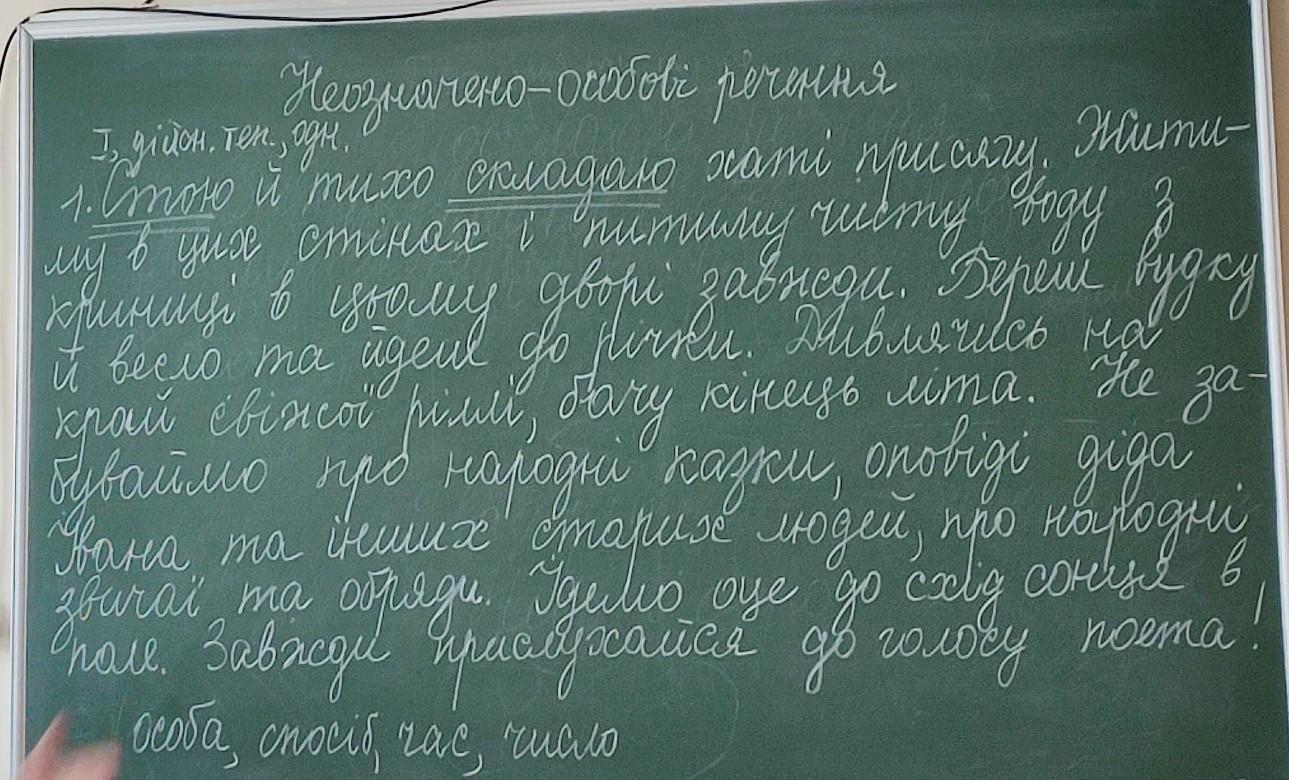 Неозначено-особові речення
I, дійсн. теп., одн.
1. Стою й тихо складаю хаті присягу. Жити-
му в цих стінах і питиму чисту воду з
криниці в цьому дворі завжди. Береш вудку
й весло та йдеш до річки. Дивлячись на
край свіжої ріллі, бачу кінець літа. Не за-
буваймо про народні казки, оповіді діда
Івана та інших старих людей, про народні
звичаї та обряди. Ідемо оце до схід сонця в
поле. Завжди прислухайся до голосу поета!
особа, спосіб, час, число